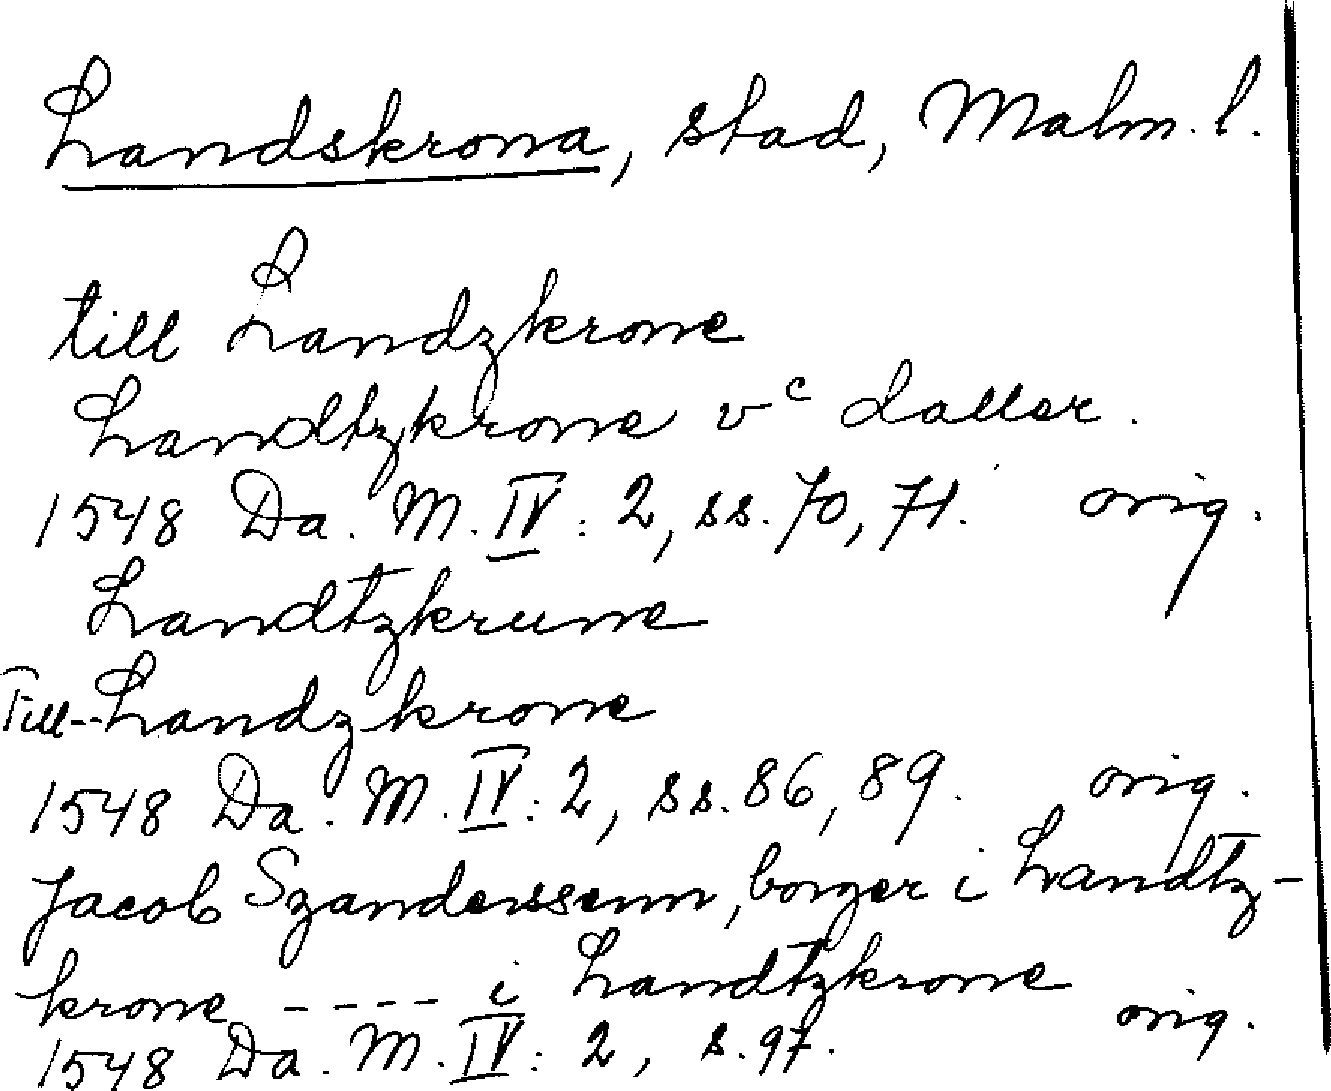 Landskrona, stad, Malm. l.
till Landzkrone
Landtzkrone vᶜ daller.
1548 Da. M. IV: 2, ss. 70, 71. orig.
Landtzkrune
Till -- Landzkrone
1548 Da. M. IV: 2, ss. 86, 89. orig.
Jacob Szanderssenn, borger i Landtz-
krone ---- i Landtzkrone
1548 Da. M. IV: 2, s. 97. orig.